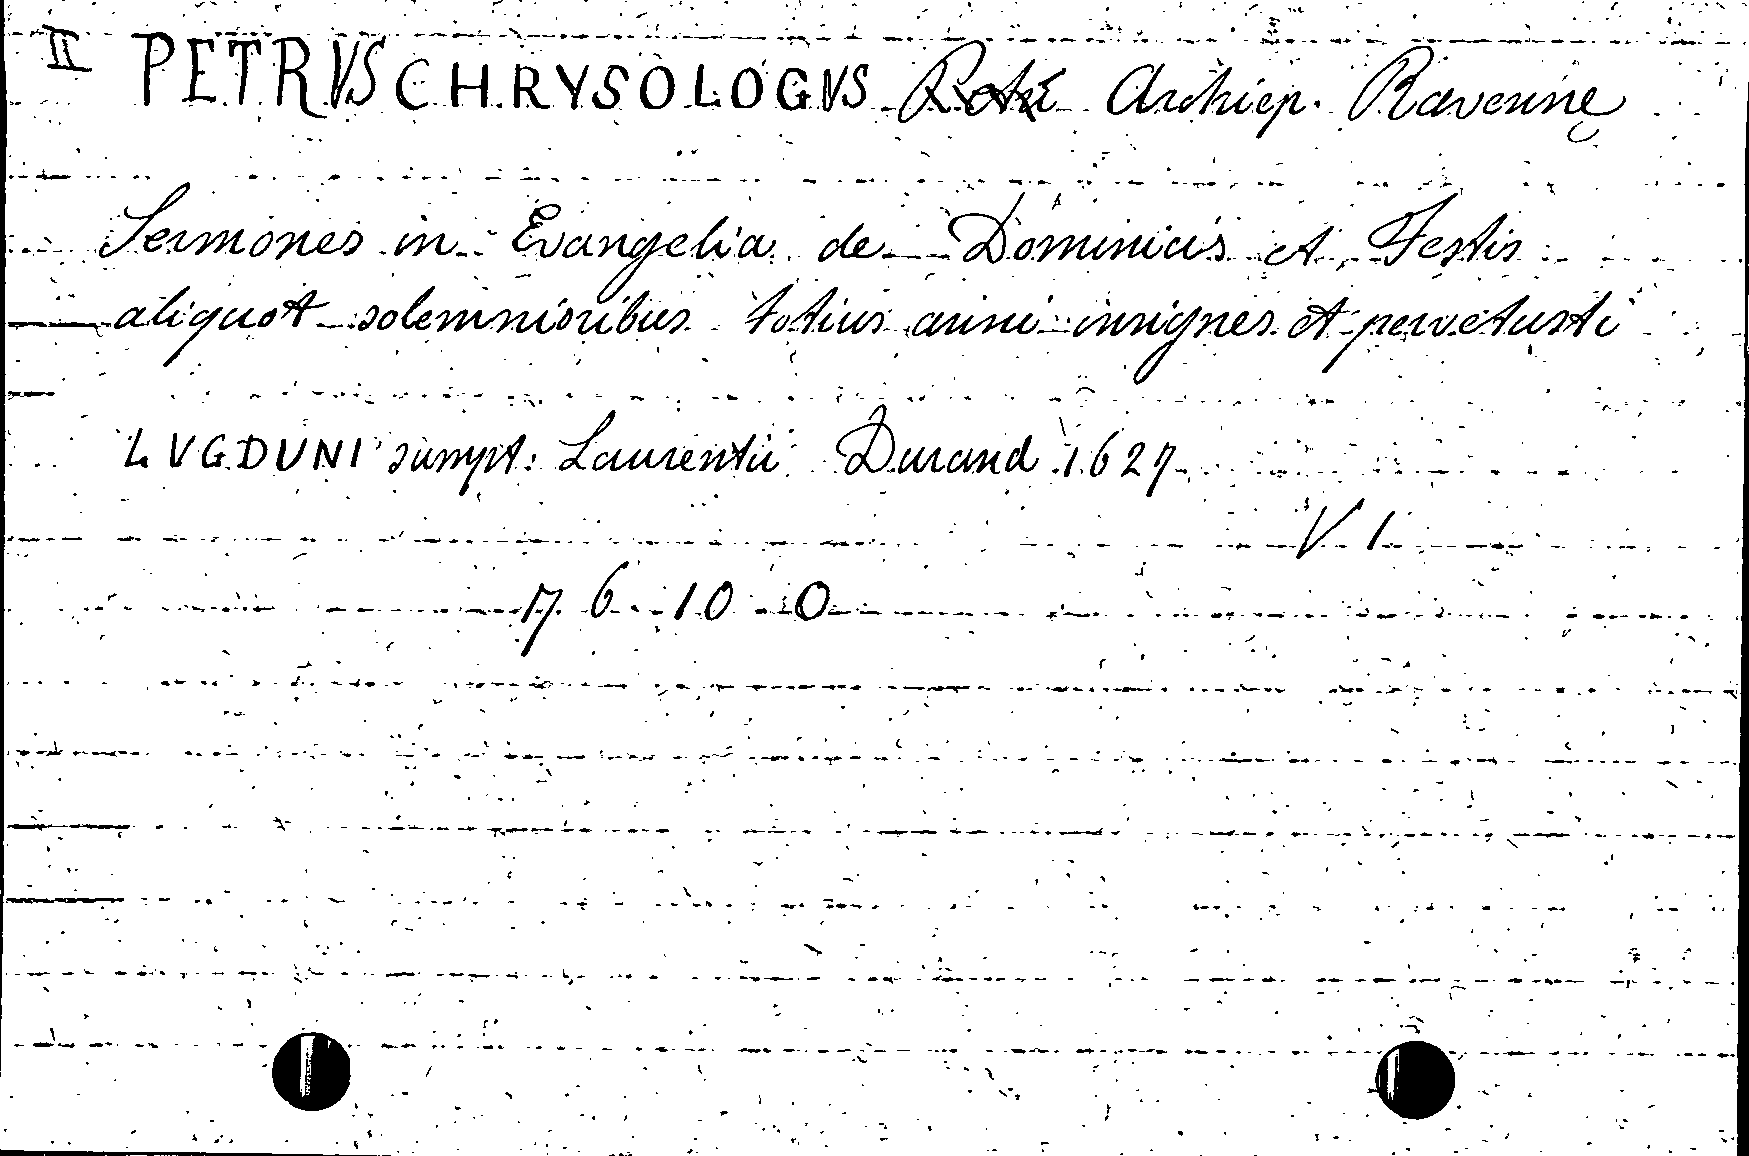 II PETRVS CHRYSOLOGVS Archiep. Ravennę
Sermones in Evangelia de Dominicis et Festis
aliquot solemnioribus totius anni insignes et pervetusti
LVGDUNI sumpt. Laurentii Durand 1627
V 1
17 6 10 0